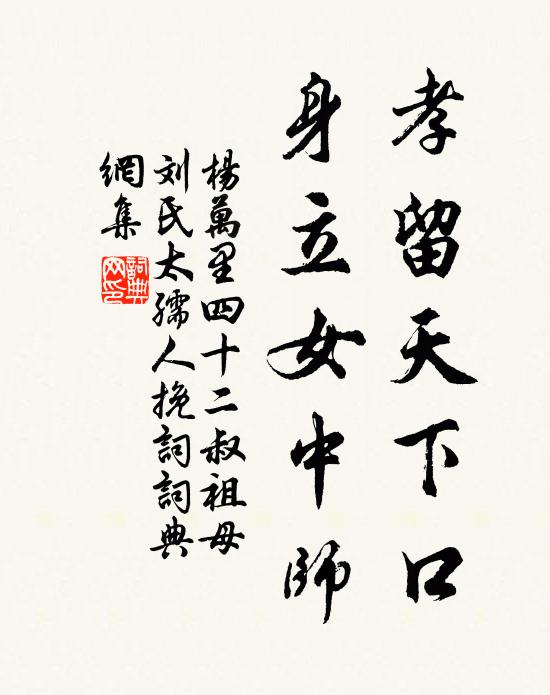 孝留天下口
身立女中師
楊萬里四十二叔祖母
刘氏太孺人挽詞詞典
網集
詞典
网印